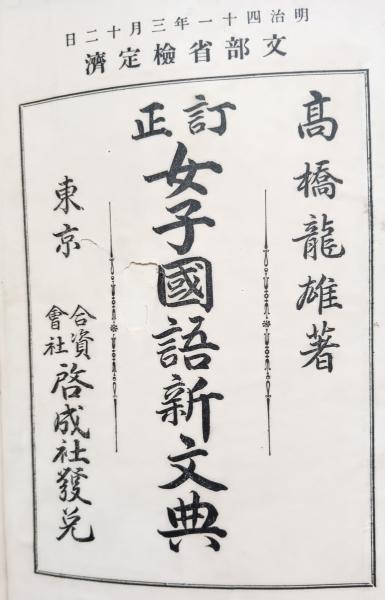 明治四十一年三月十二日
文部省檢定濟
高橋龍雄著
訂正
女子國語新文典
東京
合資會社
啓成社發兌